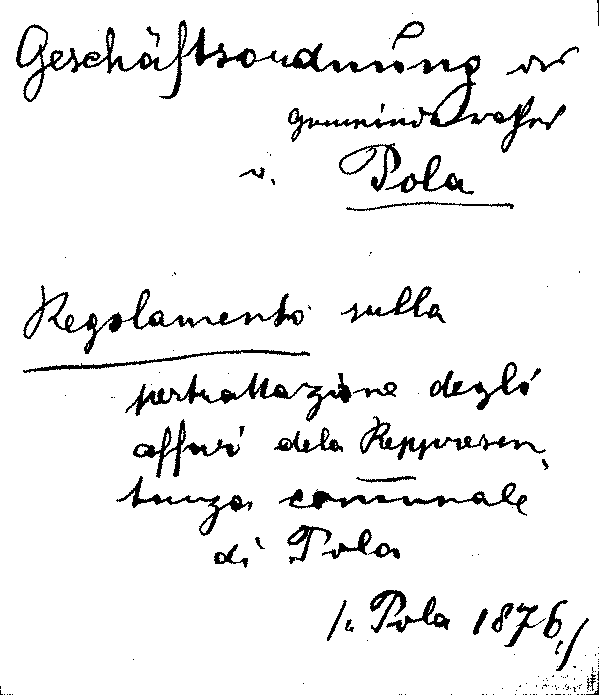 Geschäftsordnung des
Gemeinderathes
v. Pola
Regolamento sulla
pertrattazione degli
affari dela Reppresen,
tanza comunale
di Pola
/: Pola 1876 :/